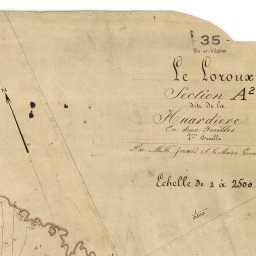 35
Ille-et-Vilaine
Le Loroux
Section A2
dite de la
Huardiere
En deux Feuilles
1ere Feuille
Par Mr
Echelle de 1 à 2500